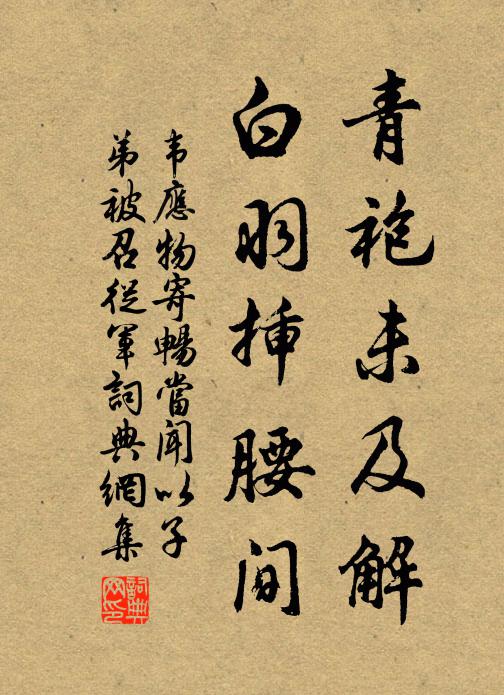 青袍未及解
白羽揷腰間
韦應物寄暢當聞以子
弟被召從軍詞典網集
詞典
网印